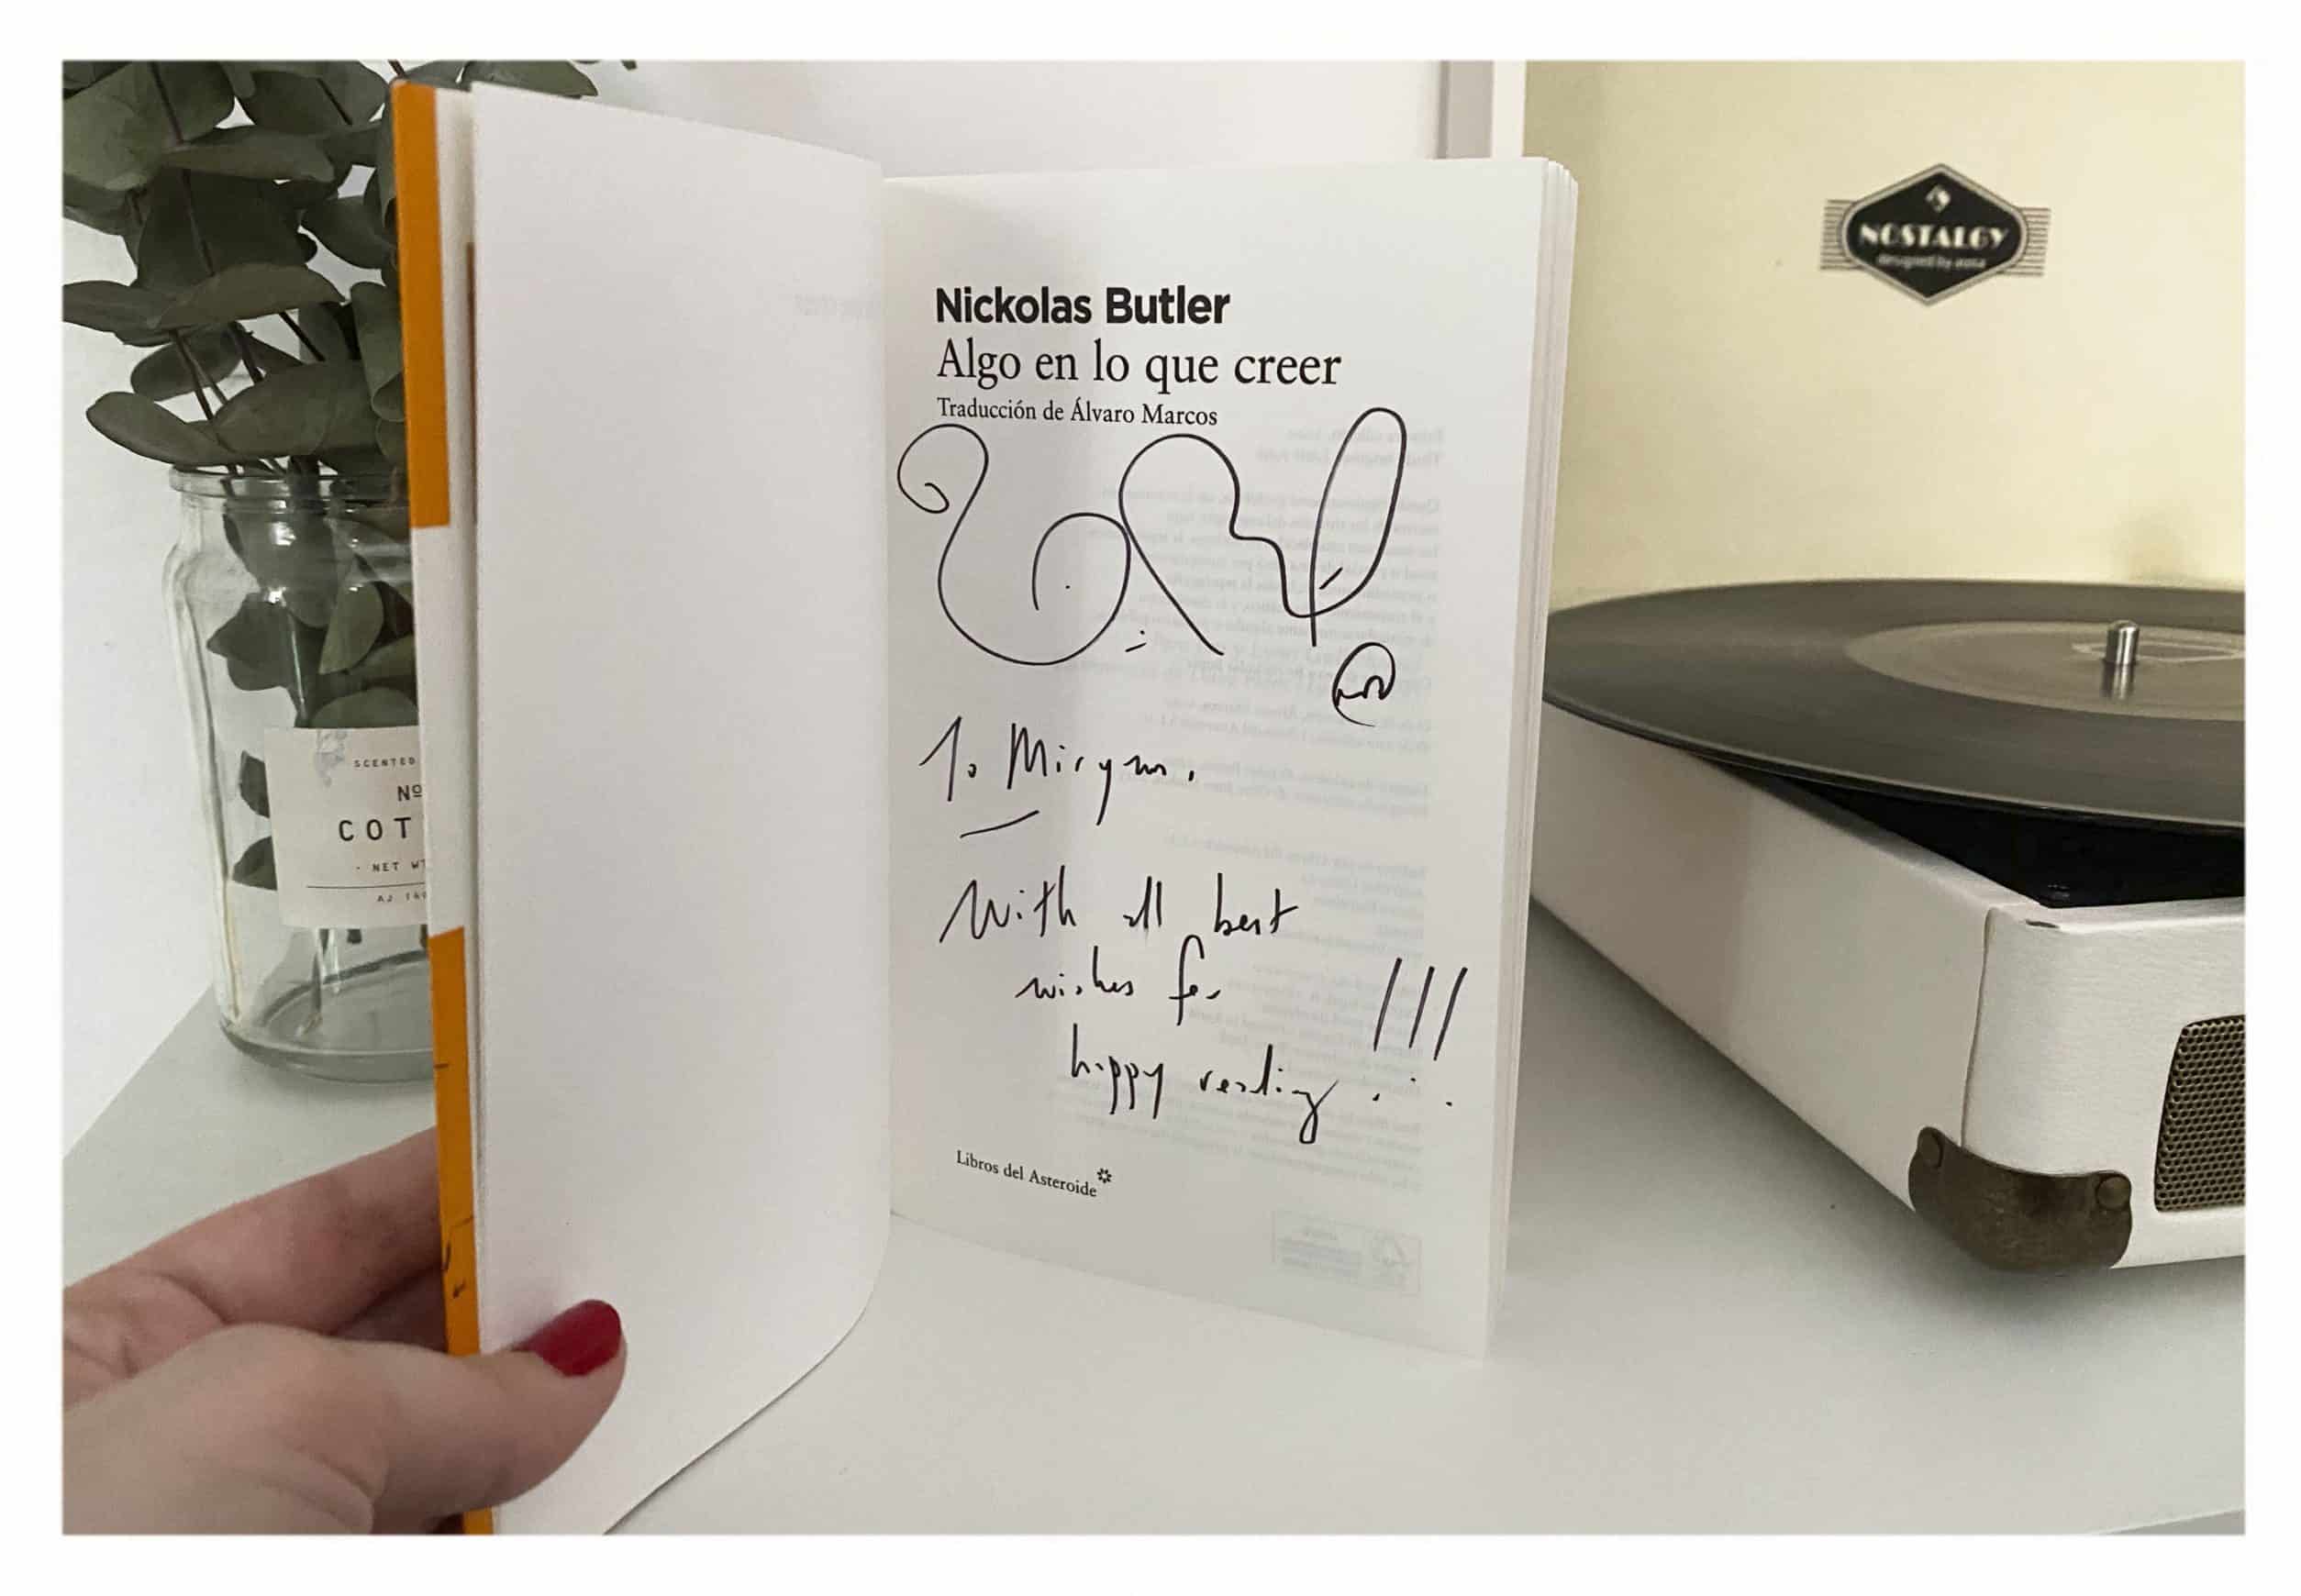 Nickolas Butler
Algo en lo que creer
Traducción de Álvaro Marcos
To Mirym.
With all best
wishes for
happy reading !!!
Libros del Asteroide
NOSTALGY
designed by
SCENTED
Nº
COT
- NET WT